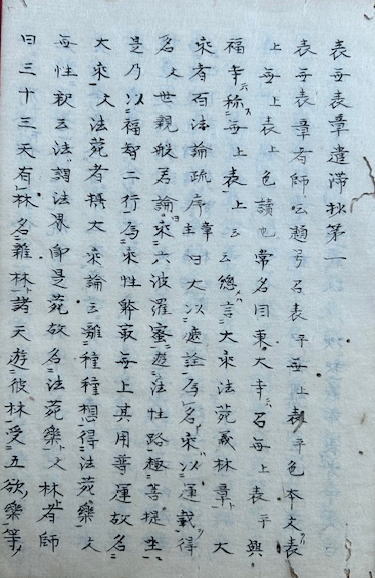 表毎表章遣滞抄第一
表毎表章者師云題号名表平毎上表平色本文表
上毎上表上色讀也常名目東大寺石毎上表平興
福寺称毎上表上云云總言大乘法苑義林章大
乘者百法論疏序章主曰大以處詮為名乘以運載得
名文世親般若論曰乘六波羅蜜遊法性路極菩提
是乃以福智二行為乘性解最毎上其用普運故名
大乘文法苑者構大乘論云離種種想得法苑樂文
毎性釈云法謂法界即是苑故名法苑樂文林者師
曰三十三天有林名雜林諸天遊彼林受五欲樂等